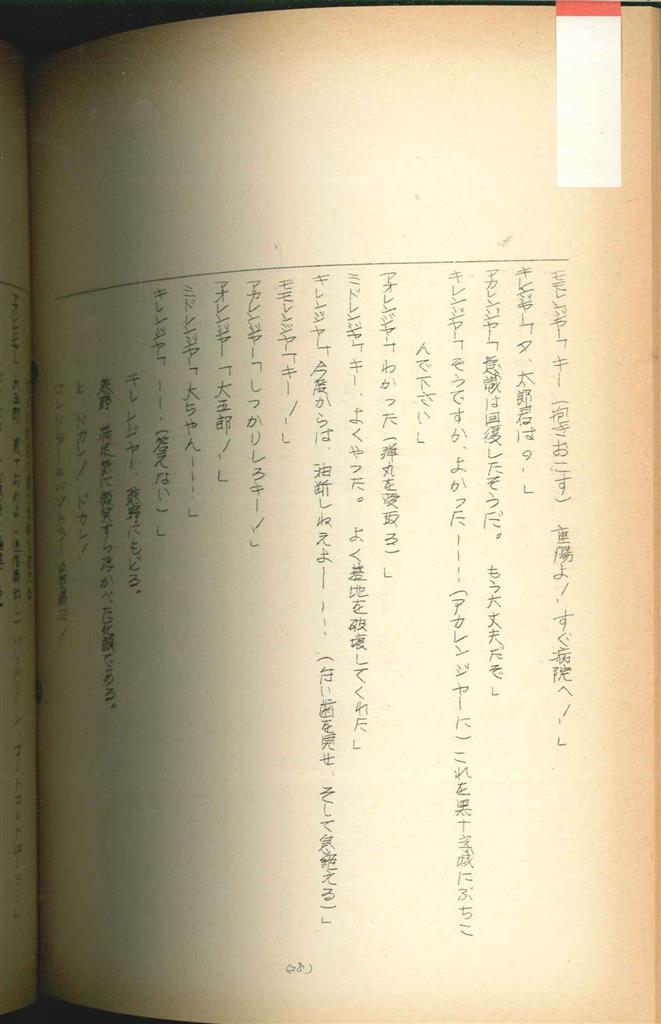 モモレンジャー「キー（抱きおこす）　重傷よ！すぐ病院へ！」
キレンジャー「タ、太郎君は？」
アカレンジャー「意識は回復したそうだ。もう大丈夫だぞ」
キレンジャー「そうですか、よかった………（アカレンジャーに）これを黒十字城にぶちこ
んで下さい」
アオレンジャー「わかった（弾丸を受取る）」
ミドレンジャー「キー、よくやった。よく基地を破壊してくれた」
キレンジャー「今度からは、油断しねえよ………（白い歯を見せ、そして息絶える）」
モモレンジャー「キー！」
アカレンジャー「しっかりしろキー！」
アオレンジャー「大五郎！」
ミドレンジャー「大ちゃん……」
キレンジャー「………（答えない）」
キレンジャー、熊野にもどる。
熊野、満足気に微笑すら浮かべた死顔である。
と、ドカン！ドカン！
(28)